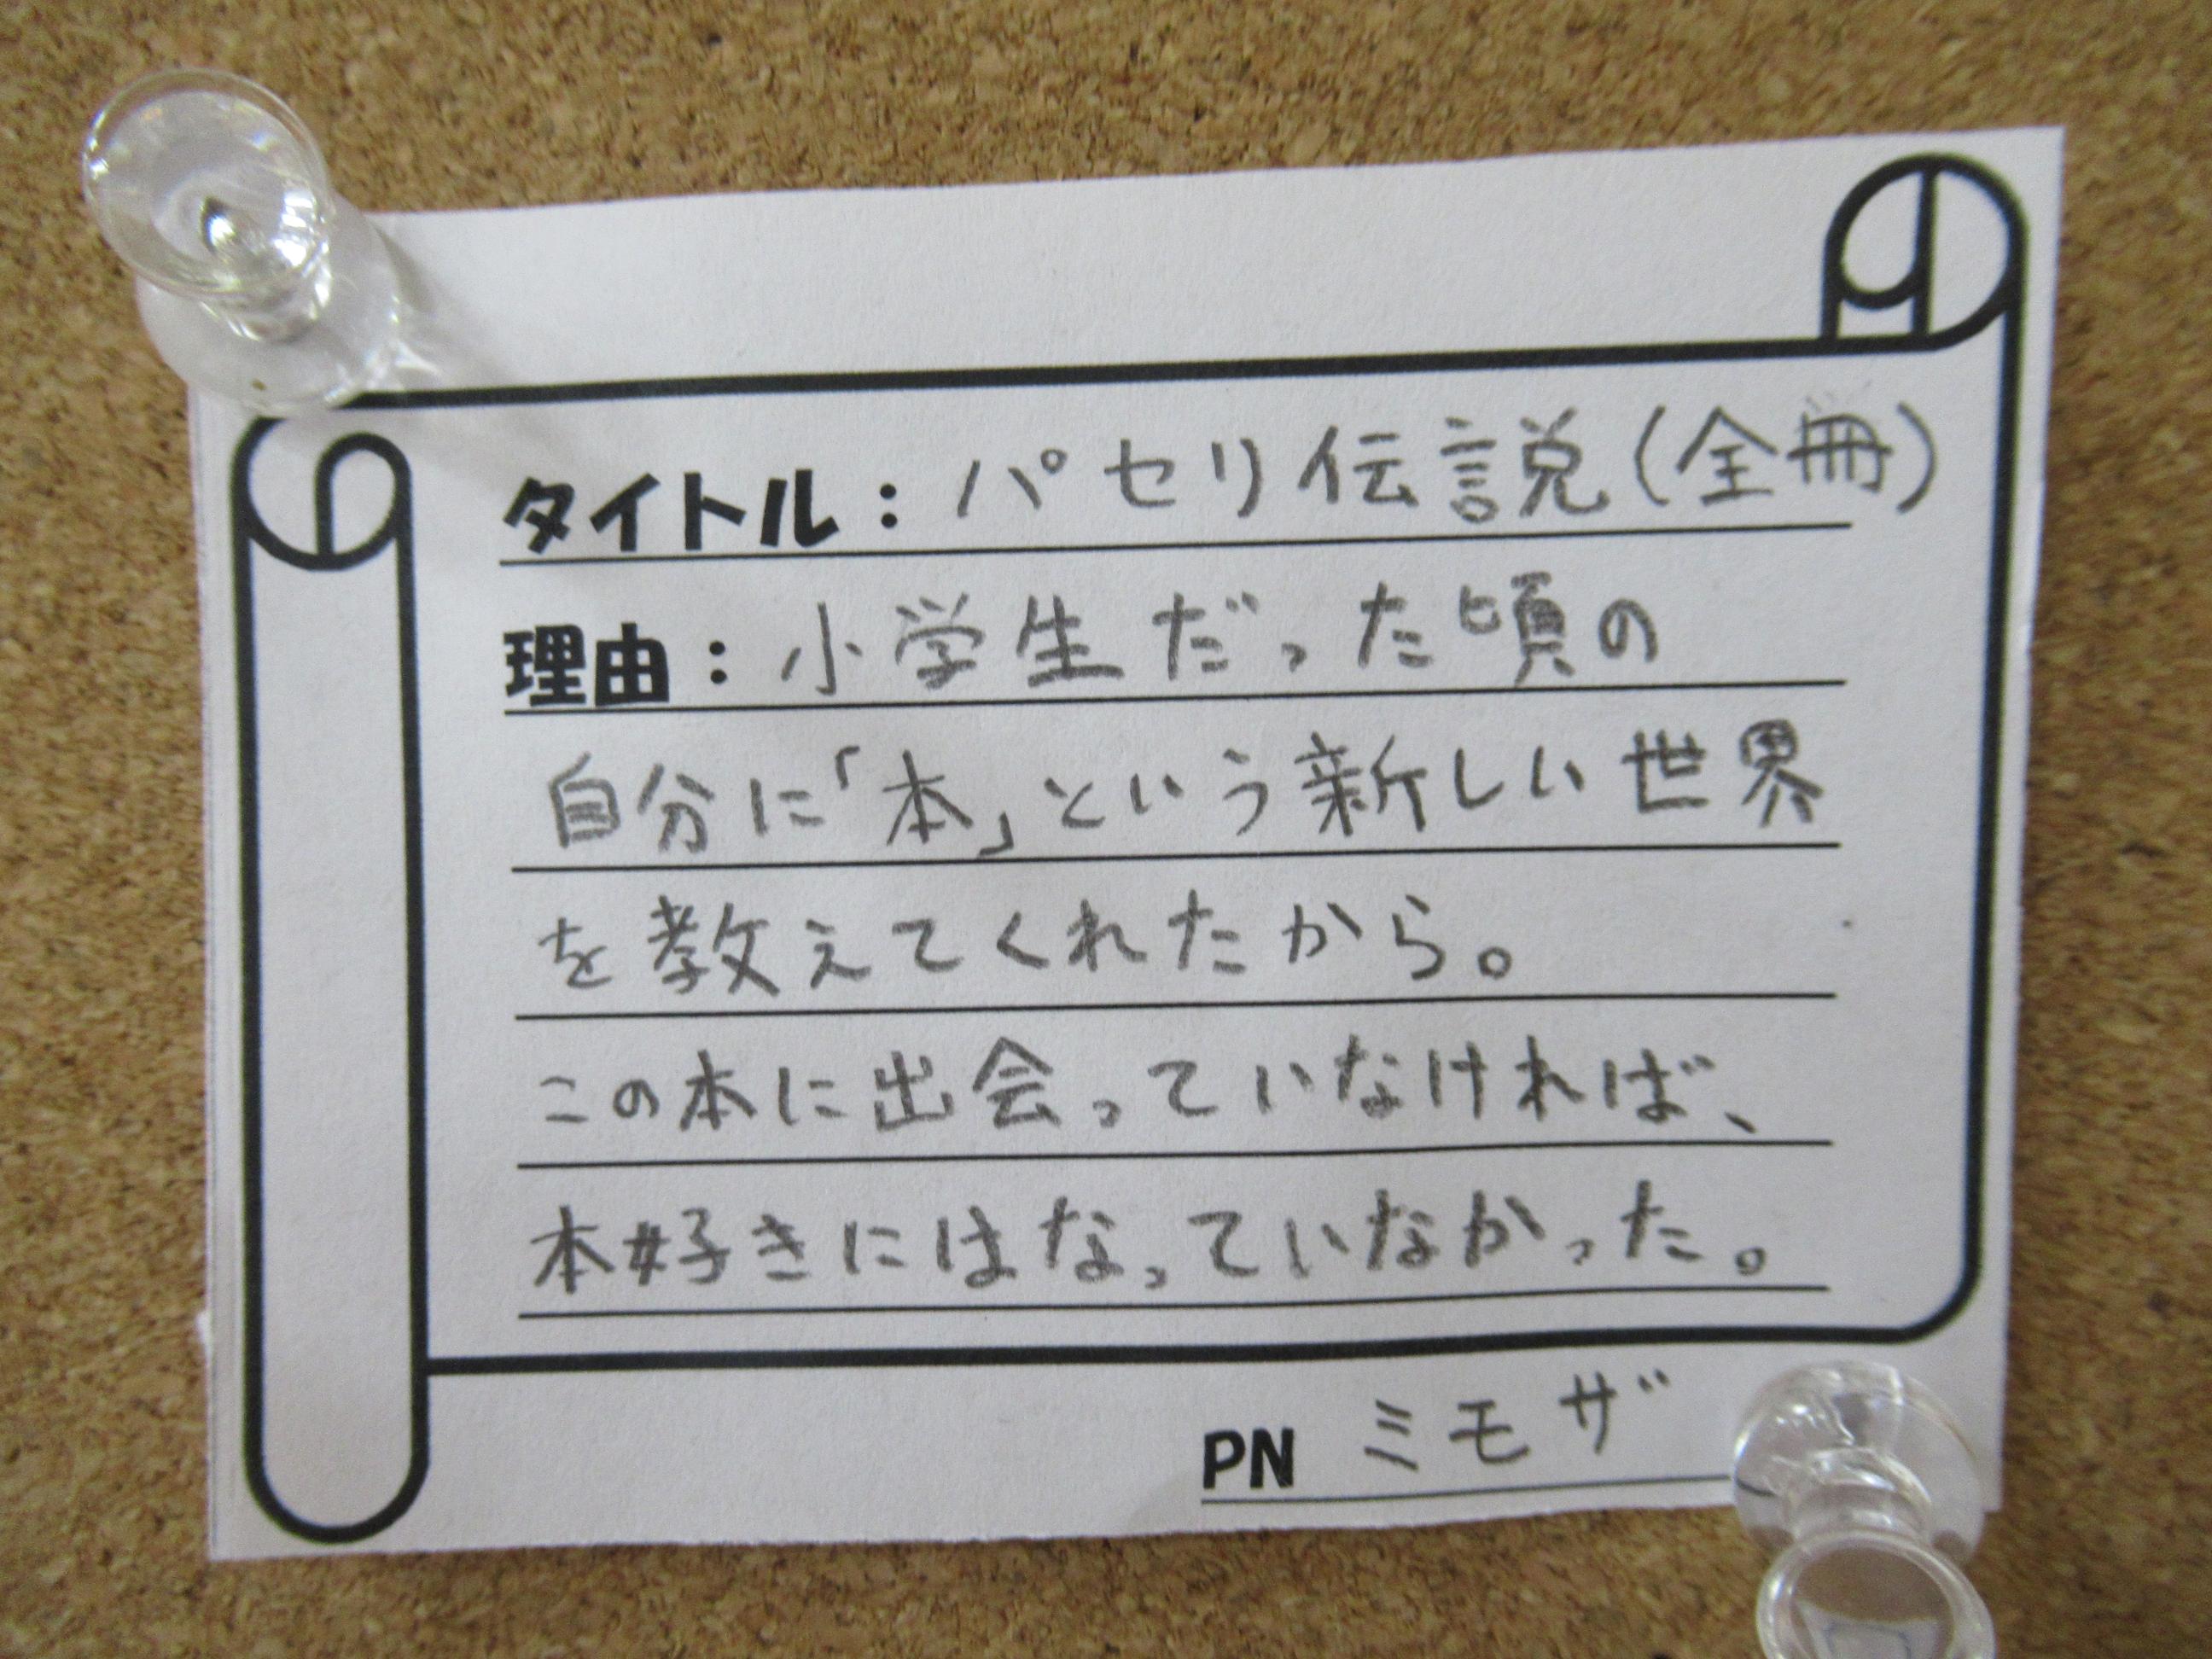 タイトル：パセリ伝説（全冊）
理由：小学生だった頃の
自分に「本」という新しい世界
を教えてくれたから。
この本に出会っていなければ、
本好きにはなっていなかった。
PN ミモザ